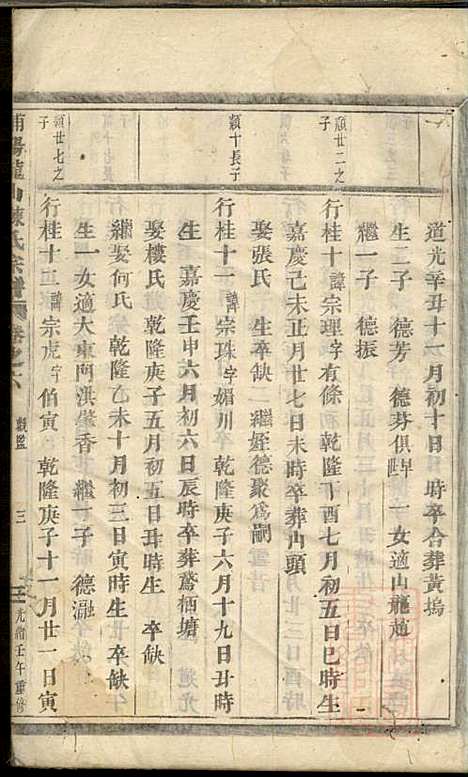 道光辛丑十一月初十日 時卒合葬黃塢
生二子 德芳 德芬俱 一女適山龍趙
繼一子 德振
顯廿二之子
行桂十諱宗理字有條 乾隆丁酉七月初五日巳時生
嘉慶己未正月廿七日未時卒葬山頭
娶張氏 生卒缺 繼姪德聚爲嗣
顯十長子
行桂十一諱宗珠字媚川 乾隆庚子六月十九日丑時
生 嘉慶壬申六月初六日辰時卒葬鵞栖塘
娶樓氏 乾隆庚子五月初五日丑時生 卒缺
繼娶何氏 乾隆乙未十月初三日寅時生 卒缺
生一女適大東門洪肇香 繼一子 德瀜
顯廿七之子
行桂十二諱宗虎字伯寅 乾隆庚子十一月廿一日寅
浦陽龍山陳氏宗譜 卷之六 三 光緒壬午重修